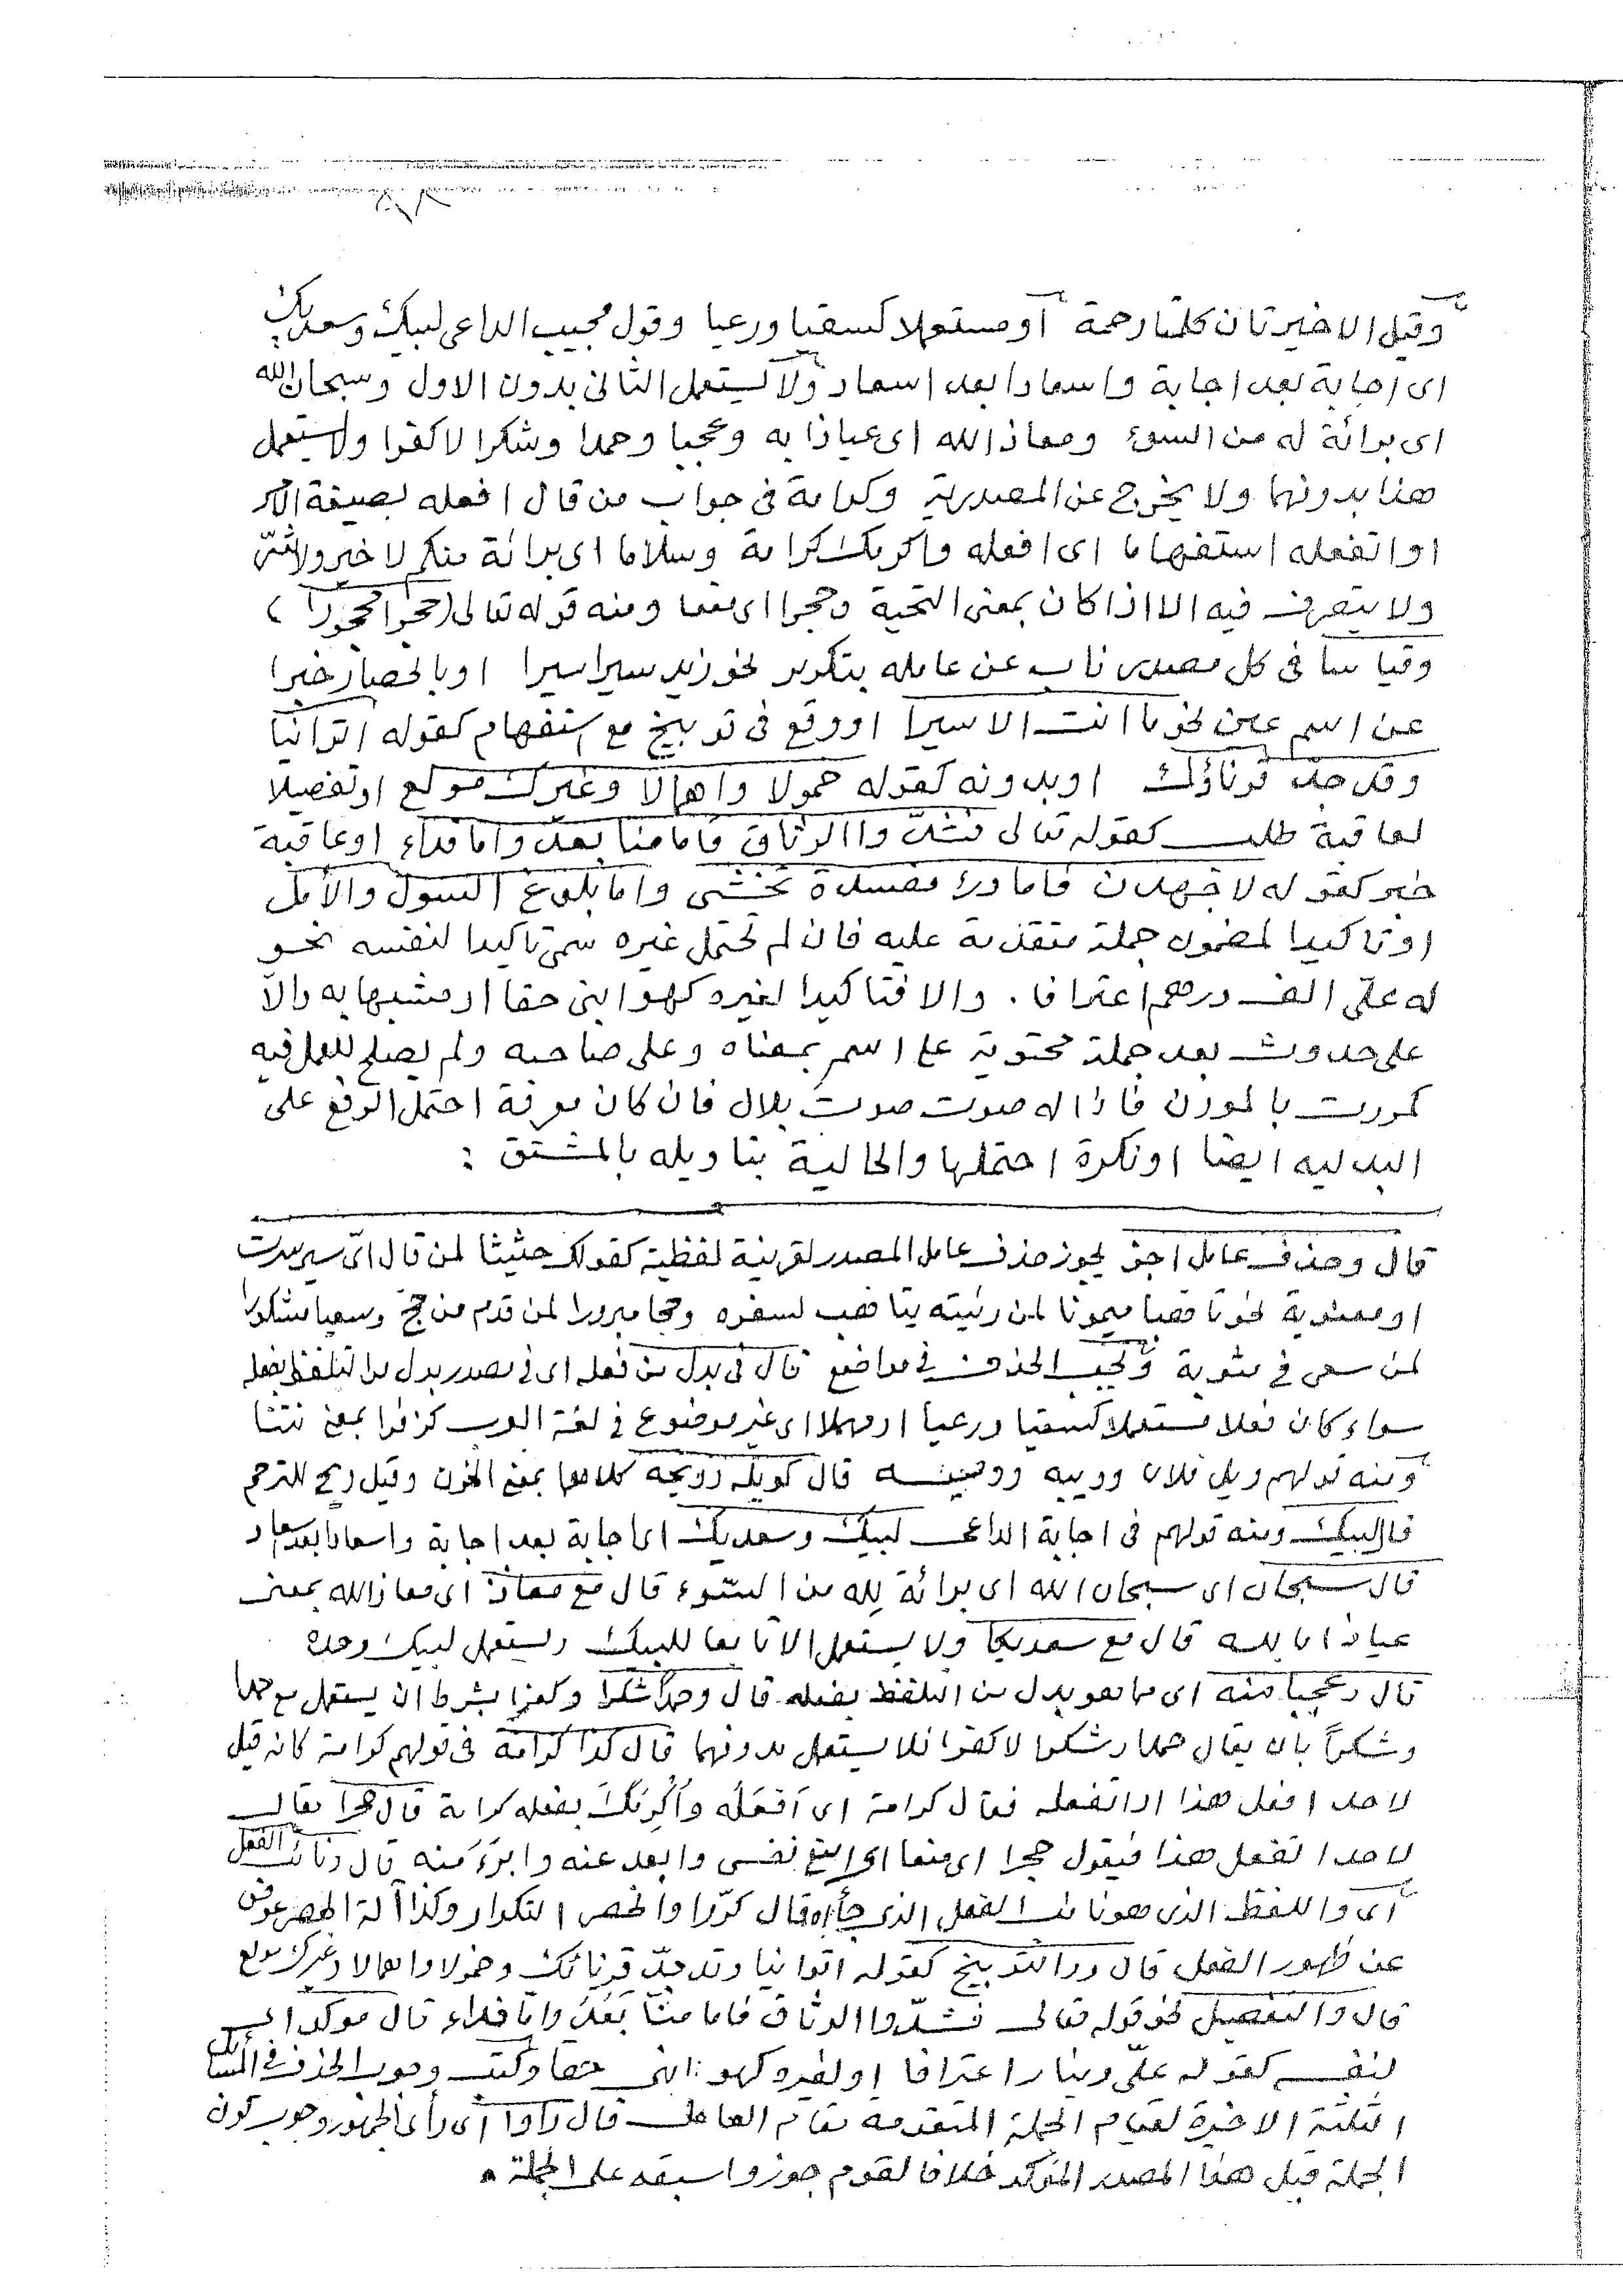 وقيل الاخيرتان كلمتا رحمة أو مستعملا كسقيا ورعيا وقول مجيب الداعى لبيك وسعديك
اى اجابة بعد اجابة واسعادا بعد اسعاد ولا يستعمل الثانى بدون الاول وسبحان الله
اى برائة له من السوء ومعاذ الله اى عياذا به وعجبا وحمدا وشكرا لا كفرا ولا يستعمل
هنا بدونهما ولا يخرج عن المصدرية وكرامة فى جواب من قال افعله بصيغة الامر
او اتفعله استفهاما اى افعله واكرمك كرامة وسلاما اى برائة منكم لا خير ولا شرّ
ولا يتصرف فيه الا اذا كان بمعنى التحية وحجرا اى منعا ومنه قوله تعالى (حجرا محجورا)
وقياسا فى كل مصدر ناب عن عامله بتكرير نحو زيد سيرا سيرا او بالحصار خبرا
عن اسم عين نحو ما انت الا سيرا او وقع فى توبيخ مع استفهام كقوله اتوانيا
وقد جدّ قرناؤك او بدونه كقوله خمولا واهمالا وغيرك مولع او تفصيلا
لعاقبة طلب كقوله تعالى فشدّوا الوثاق فاما منا بعد واما فداء او عاقبة
خبر كقوله لاجهدن فاما درء مفسدة تخشى واما بلوغ السول والأمل
او تاكيدا لمضمون جملة متقدمة عليه فان لم تحتمل غيره سمّى تاكيدا لنفسه نحو
له علىّ الف درهم اعترافا . والا فتاكيدا لغيره كهو ابنى حقا او مشبها به دالا
على حدوث بعد جملة محتوية على اسم بمعناه وعلى صاحبه ولم يصلح للعمل فيه
كمررت بالموزن فاذا له صوت صوت بلال فان كان معرفة احتمل الرفع على
البدليه ايضا او نكرة احتملها والحالية بتاويله بالمشتق :
قال وحذف عامل اجز يجوز حذف عامل المصدر لقرينة لفظية كقولك حثيثا لمن قال اىّ سير سرت
او معنوية نحو تا قصا ميمونا لمن رئيته يتاهب لسفره وحجا مبرورا لمن قدم من حج وسعيا مشكورا
لمن سعى فى مثوبة ويجب الحذف فى مواضع قال فى بدل من فعله اى فى مصدر بدل من التلفظ بفعله
سواء كان فعلا مستعملا كسقيا ورعيا او مهملا اى غير موضوع فى لغة العرب كزفرا بمعنى نتنا
ومنه قولهم ويل فلان وويبه وويسه قال كويله وويحه كلاهما بمعنى الحزن وقيل ويح للترحم
قال لبيك ومنه قولهم فى اجابة الداعى لبيك وسعديك اى اجابة بعد اجابة واسعادا بعد اسعاد
قال سبحان اى سبحان الله اى برائة لله من السّوء قال مع معاذ اى معاذ الله بمعنى
عياذا بالله قال مع سعديكا ولا يستعمل الا تابعا للبيك ويستعمل لبيك وحده
قال وعجبا منه اى مما هو بدل من التلفظ بفعله قال وحمداً شكرا وكفرا بشرط ان يستعمل مع حمدا
وشكراً بان يقال حمدا وشكرا لا كفرا فلا يستعمل بدونهما قال كذا كرامة فى قولهم كرامة كانه قيل
لاحد افعل هذا او اتفعله فقال كرامة اى أَفعَلُه وأُكرِمُكَ بفعله كرامة قال حجرا يقال
لاحد اتفعل هذا فيقول حجرا اى منعا اى امنع نفسى وابعد عنه وابرَء منه قال ونائب الفعل
أى واللفظ الذى هو نائب الفعل الذى جأ اه قال كرّرا والحصر التكرار وكذا آلة الحصر عوض
عن ظهور الفعل قال وذا التوبيخ كقوله اتوانيا وقد جدّ قرنائك وخمولا واهمالا وغيرك مولع
قال والتفصيل نحو قوله تعالى فشدّوا الوثاق فاما منّا بَعْدُ وامّا فداء قال موكدا اى
لنفسه كقوله علىّ دينار اعترافا او لغيره كهو ابنى حقا وكتب وجوب الحذف فى المسائل
الثلثة الاخيرة لقيام الجملة المتقدمة مقام العامل قال رأوا أى رأى الجمهور وجوب كون
الجملة قبل هذا المصدر المؤكد خلافا لقوم جوزوا سبقه على الجملة .